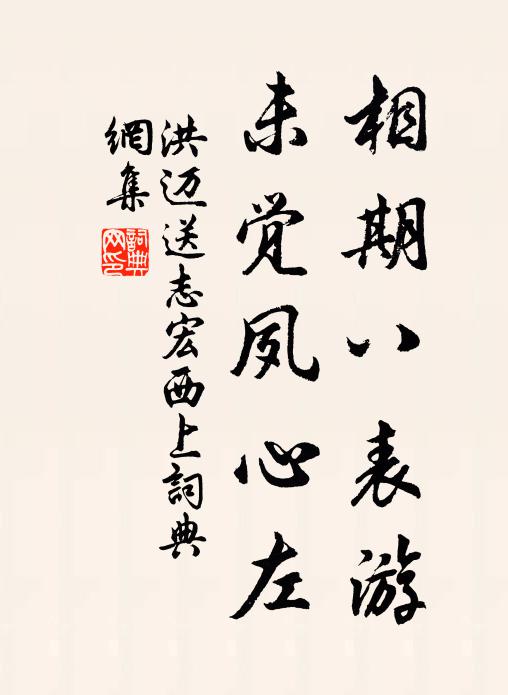 相期八表游
未觉夙心左
洪迈送志宏西上詞典
網集
詞典
网印